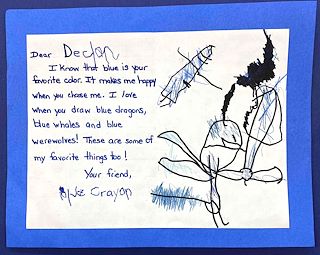 Dear Declan
I know that blue is your
favorite color. It makes me happy
when you chose me. I love
when you draw blue dragons,
blue whales and blue
werewolves! These are some of
my favorite things too!
Your friend,
Blue Crayon